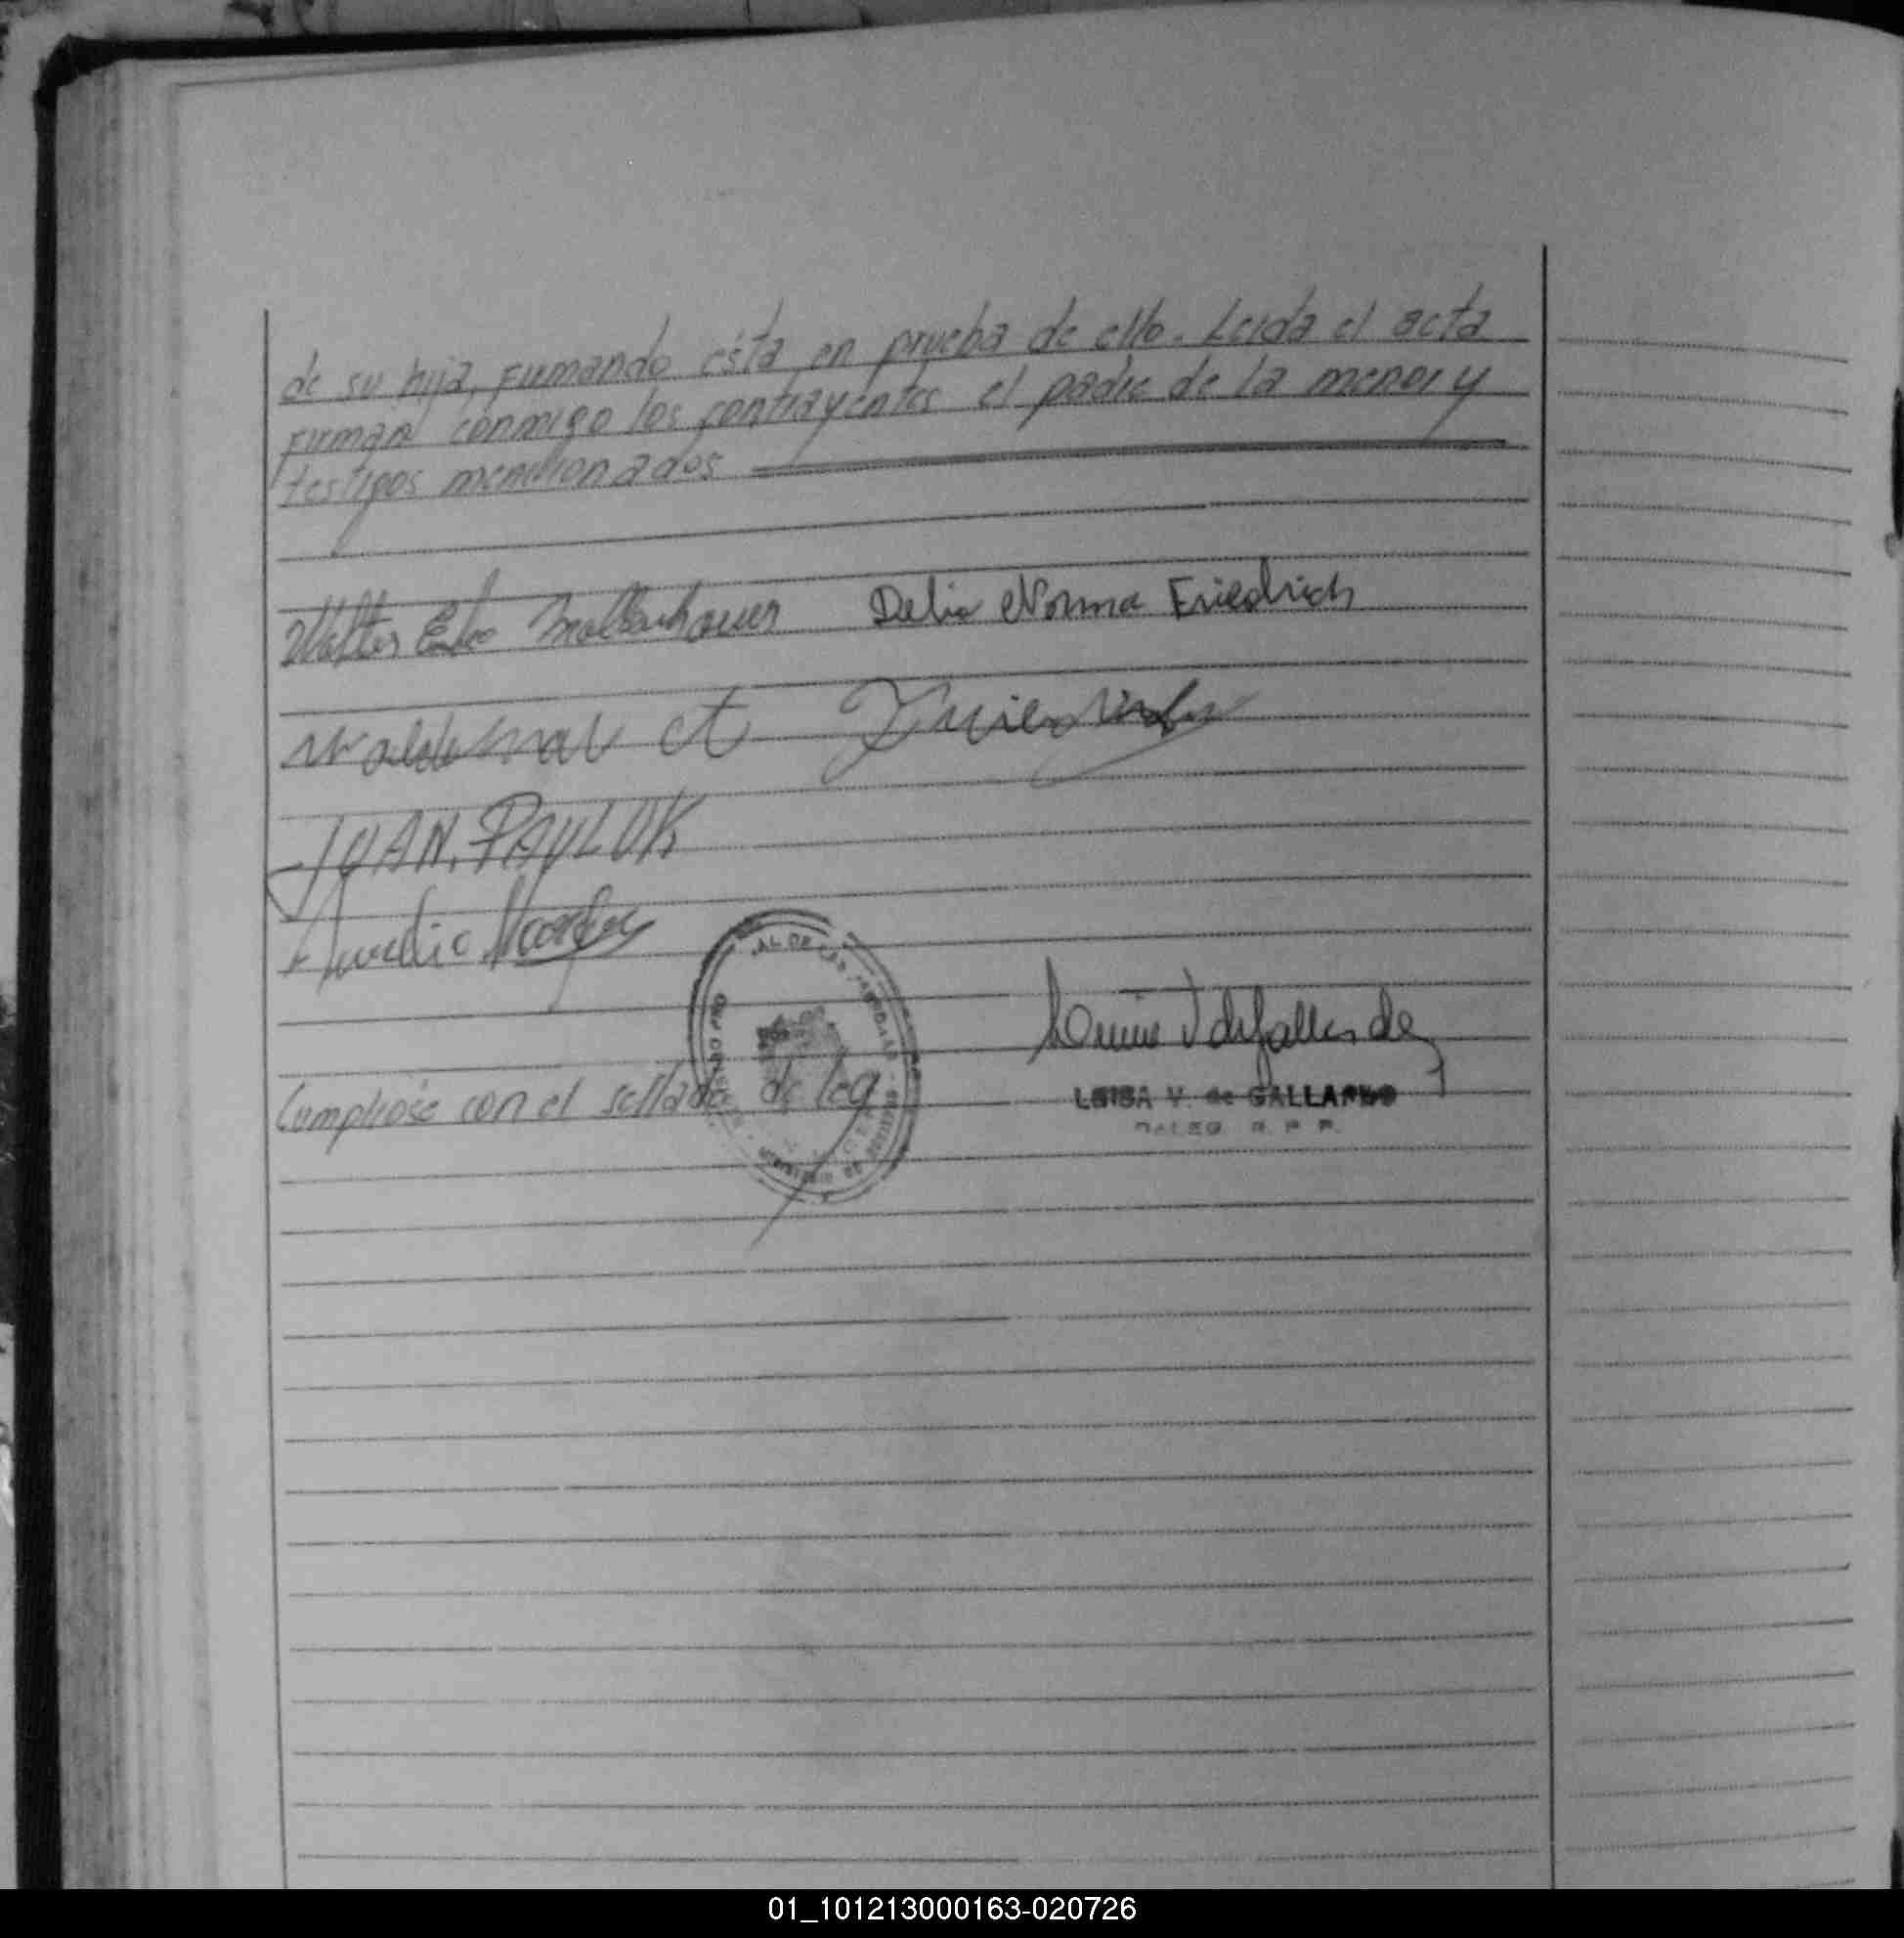 de su hija, firmando ésta en prueba de ello. Leida el acta
firman conmigo los contrayentes el padre de la menor y
testigos mencionados
Walter Mollenhauer Delia Norma Friedrich
Waldemar A Friedrich
JUAN. PAYLUK
Aurelio
Cumplióse con el sellado de ley
LUISA V. de GALLARDO
R. P. P.
01_101213000163-020726